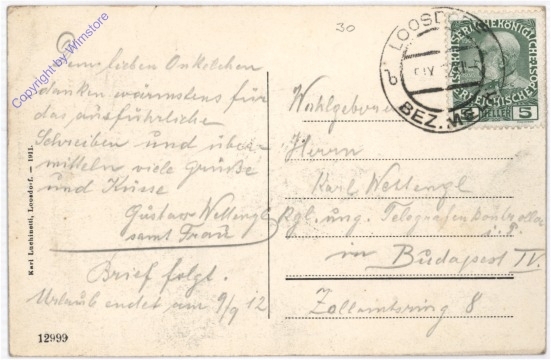 30
Dem lieben Onkelchen
danken wärmstens für
das ausführliche
Schreiben und über-
mitteln viele Grüße
und Küsse
Gustav Wettengl
samt Frau
Brief folgt.
Urlaub endet am 9/9 12
Karl Luchinetti, Loosdorf. — 1911.
12999
Copyright by Wimstore
LOOSDORF
BEZ. ME
KAISERLICHE KÖNIGLICHE
ÖSTERREICHISCHE
HELLER 5
Wohlgeboren
Herrn
Karl Wettengl
Kgl. ung. Telegrafenkontrollor
i. P.
in Budapest IV.
Zollamtsring 8